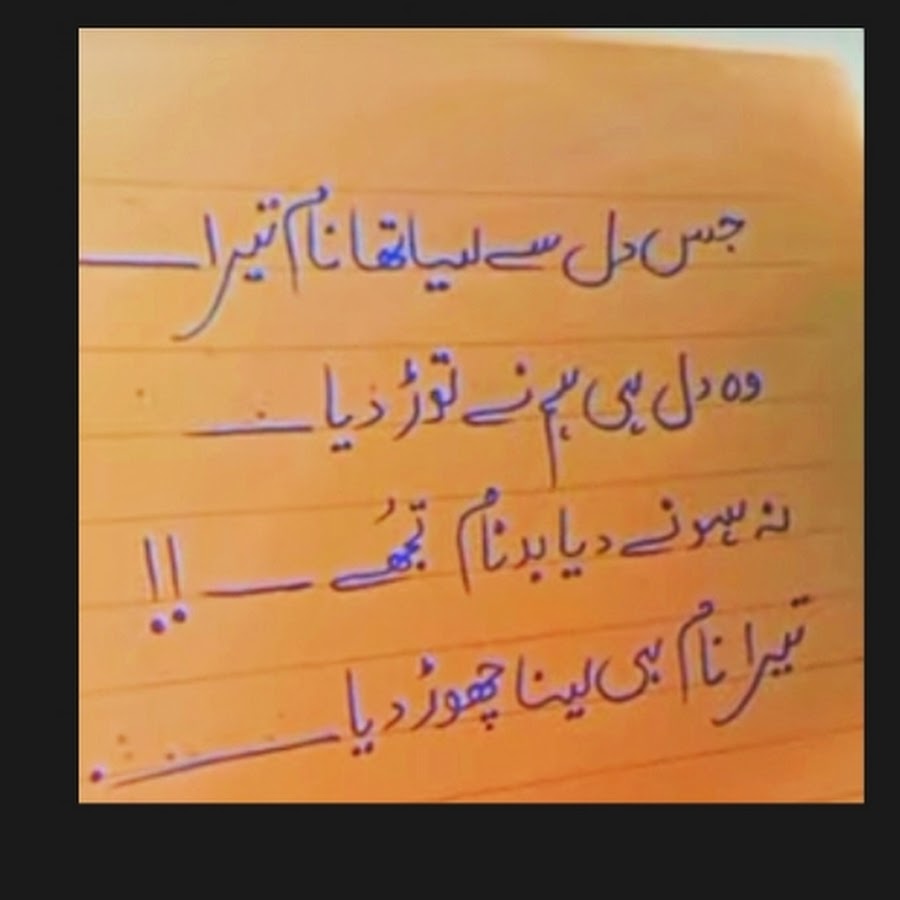 جس دل سے لیا تھا نام تیرا ـــــ
وہ دل ہی ہم نے توڑ دیا ـــــ
نہ ہونے دیا بدنام تجُھے ـــــ !!
تیرا نام ہی لینا چھوڑ دیا ـــــ.